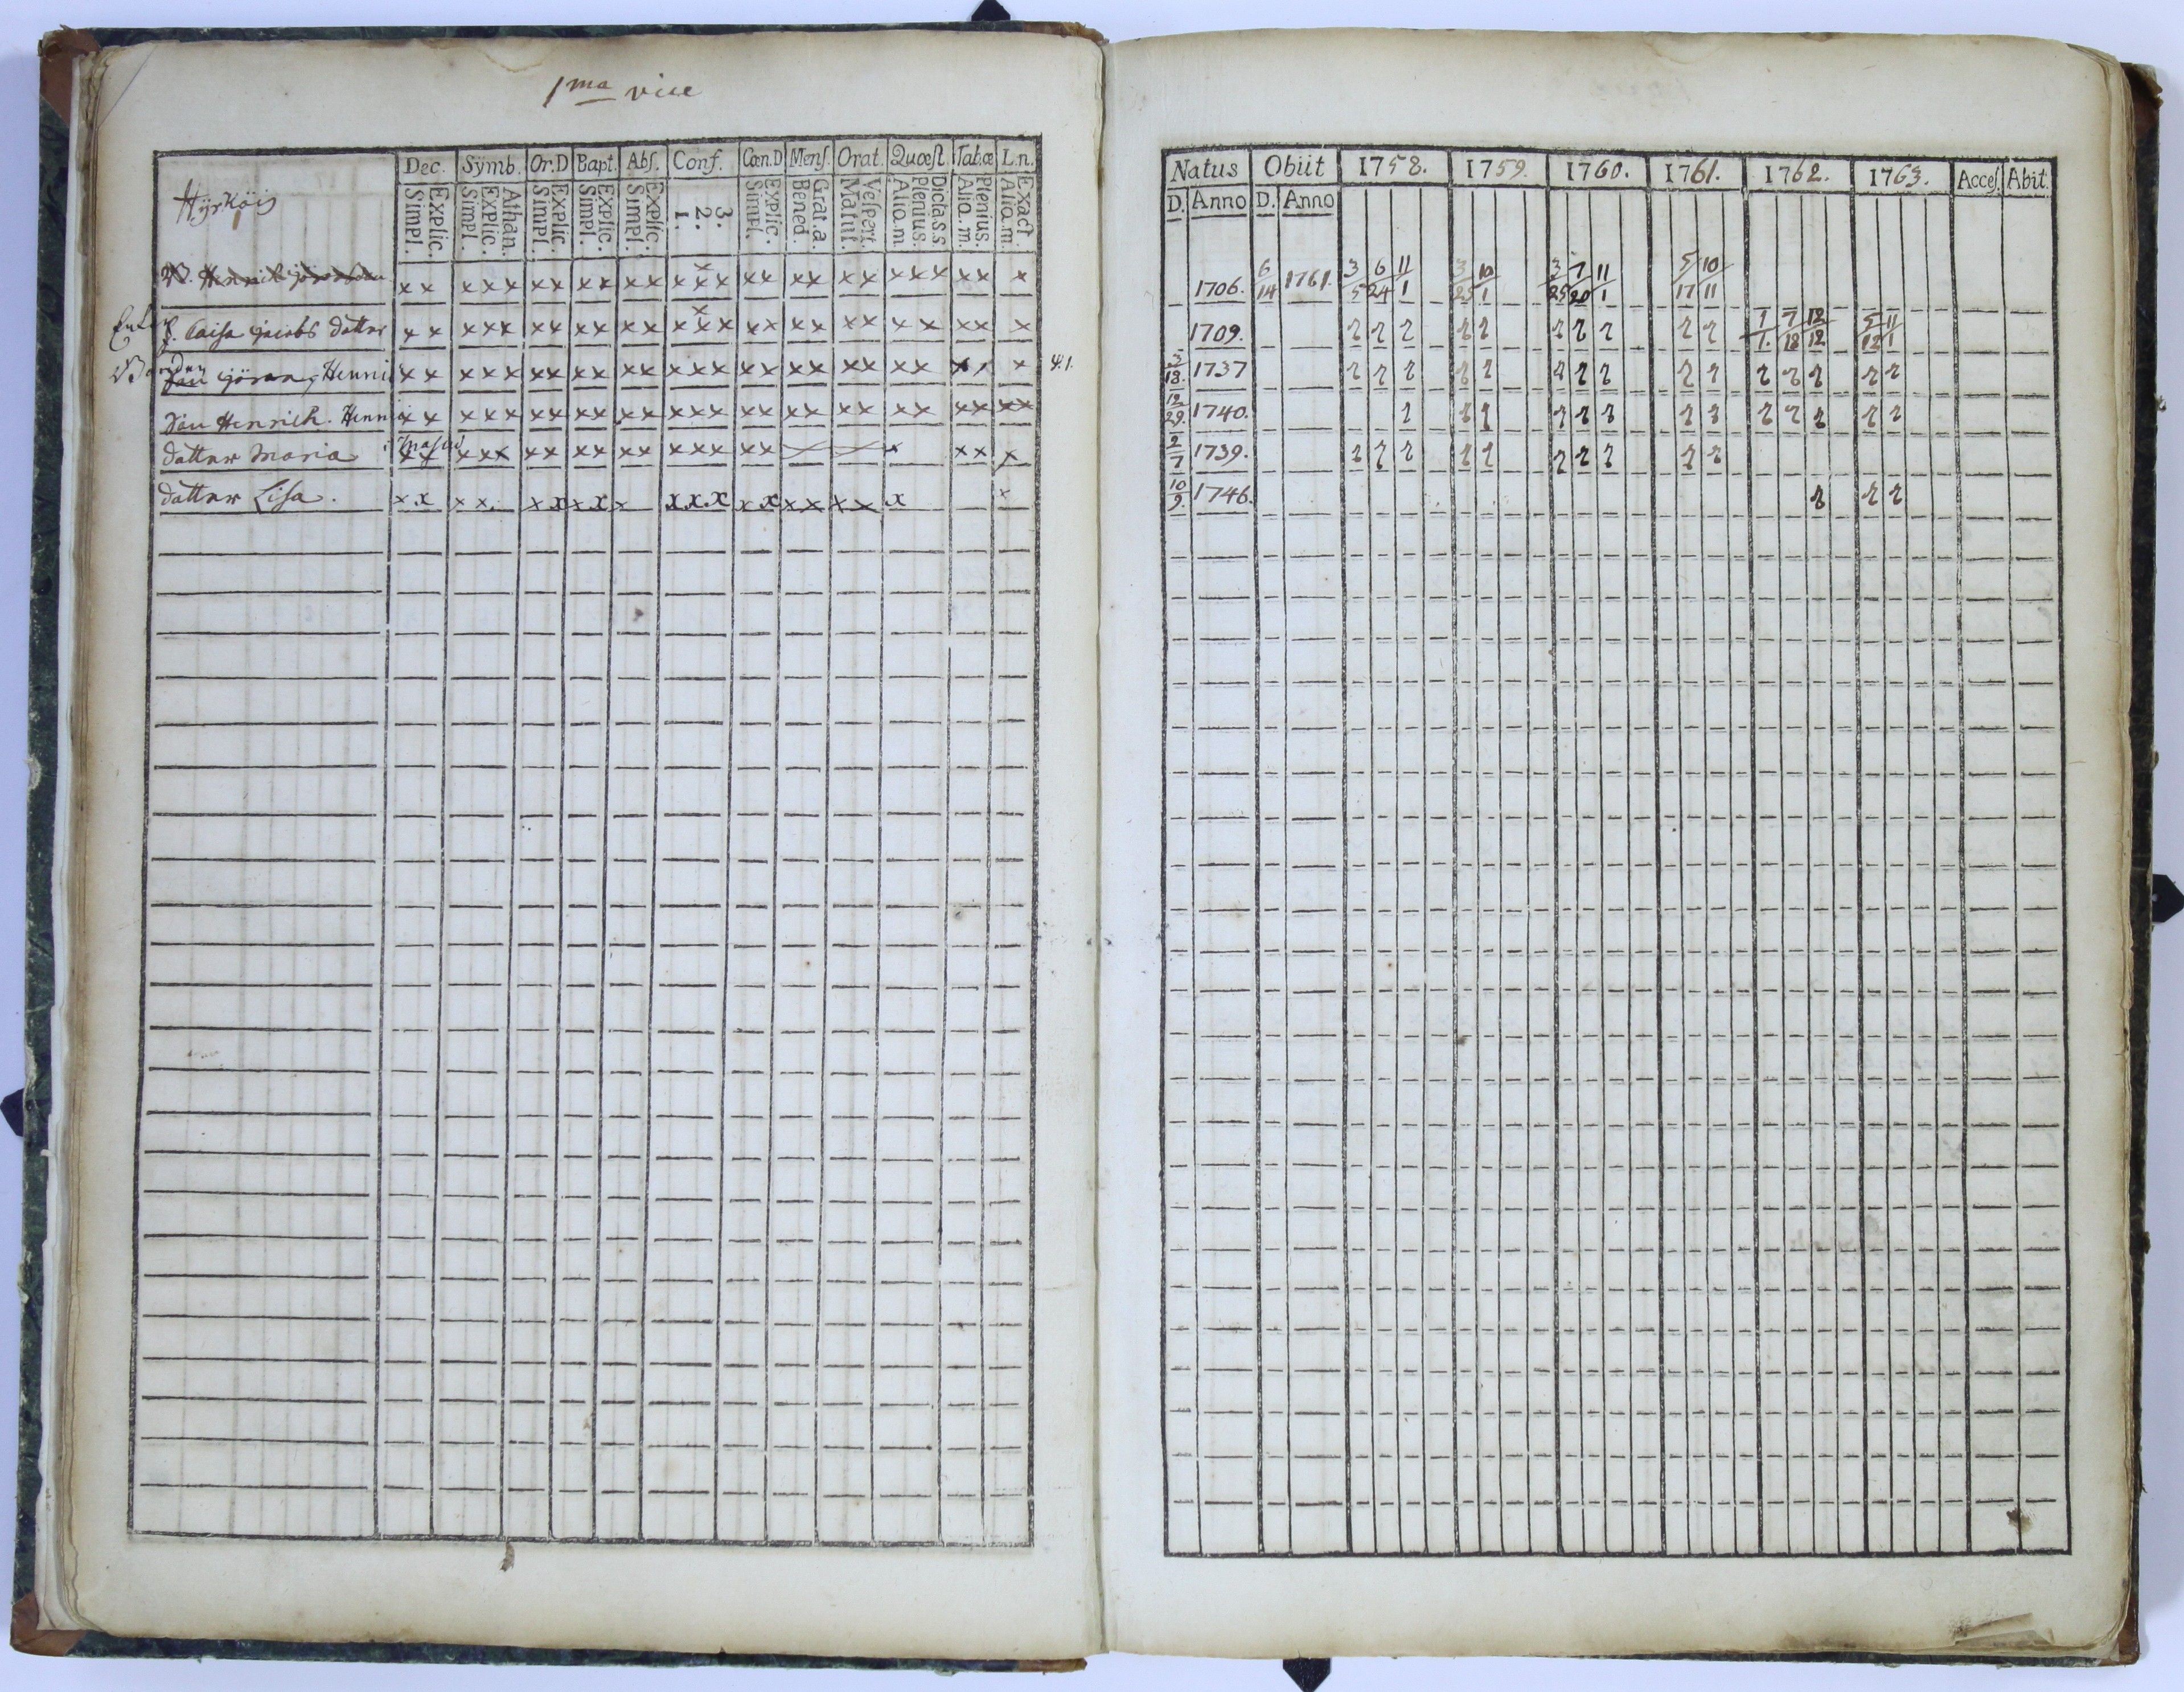 1ma vice
Hÿrköis
Dec. Sÿmb. Or.D Bapt. Abſ. Conf. Cœn.D Menſ. Orat. Quœſt. Tab.œ L.n.
Simpl. Explic. Simpl. Explic. Athan. Simpl. Explic. Simpl. Explic. Simpl. Explic. 1. 2. 3. Simpl. Explic. Bened. Grat.a. Matut. Veſpert. Alio.m. Plenius. Dicta.s.s Alio.m. Plenius. Alio.m. Exact.
B. Henrich Göransson x x x x x x x x x x x x x x x x x x x x x x x x x x x
H. Caisa Jacobs dotter x x x x x x x x x x x x x x x x x x x x x x x x x
Bonden Son Göran Henri x x x x x x x x x x x x x x x x x x x x x x x x 4.1.
Son Henrich. Henri x x x x x x x x x x x x x x x x x x x x x x x x x
dotter Maria x x x x x x x x x x x x x x x x x x x x
dotter Lisa. x x x x x x x x x x x x x x x x x x x x
Natus Obiit 1758. 1759. 1760. 1761. 1762. 1763. Acceſ. Abit.
D. Anno D. Anno
1706. 6/14 1761. 3/5 6/24 11/1 3/25 10/1 3/25 7/20 11/1 5/17 10/11
1709. 2 2 2 2 2 2 2 2 2 2 1/1. 7/18 12/12 5/12 11/1
3/18. 1737 2 2 2 2 2 2 2 2 2 2 2 2 2 2 2
12/29. 1740. 2 2 2 2 2 2 2 2 2 2 2 2 2
2/7 1739. 2 2 2 2 2 2 2 2 2 2
10/9. 1746. 2 2 2